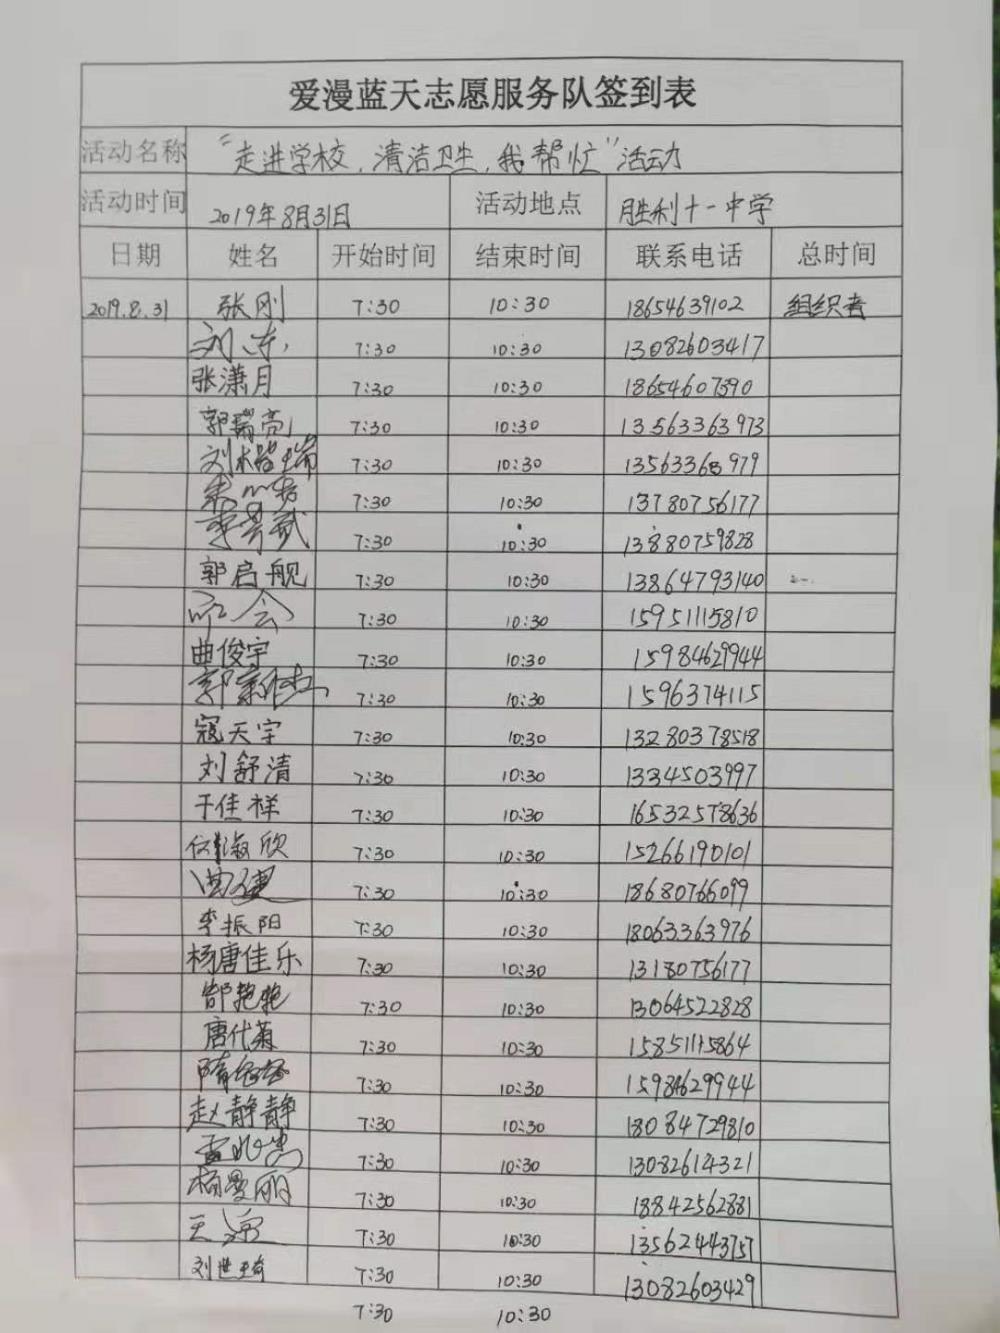 爱漫蓝天志愿服务队签到表
活动名称 "走进学校,清洁卫生,我帮忙"活动
活动时间 2019年8月31日 活动地点 胜利十一中学
日期 姓名 开始时间 结束时间 联系电话 总时间
2019.8.31 张刚 7:30 10:30 18654639102 组织者
7:30 10:30 13082603417
张潇月 7:30 10:30 18654607390
郭瑞亮 7:30 10:30 13563363973
7:30 10:30 979
7:30 10:30 13780756177
7:30 10:30 13880759828
郭启舰 7:30 10:30 13864793140
7:30 10:30 15951115810
曲俊宇 7:30 10:30 15984629944
7:30 10:30 1596374115
寇天宇 7:30 10:30 13280378518
刘舒清 7:30 10:30 1334503997
于佳祥 7:30 10:30 16532578636
7:30 10:30 15266190101
7:30 10:30 18680766099
李振阳 7:30 10:30 18063363976
杨唐佳乐 7:30 10:30 13180756177
郜艳艳 7:30 10:30 13064522828
唐代菊 7:30 10:30 15851115864
7:30 10:30 15984629944
赵静静 7:30 10:30 18084729810
7:30 10:30 13082614321
杨曼丽 7:30 10:30 18842562881
7:30 10:30 13562443757
刘世琦 7:30 10:30 13082603429
7:30 10:30